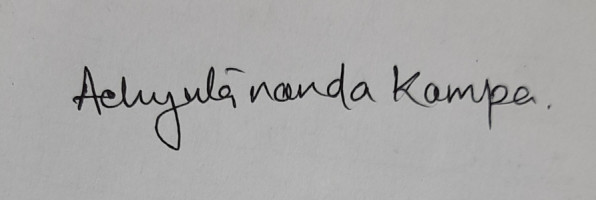 Achyutānanda Kampa.